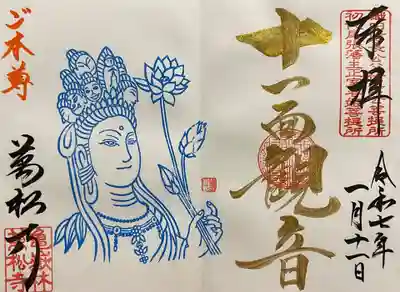 奉拝
令和七年
一月十一日
十一面観音
ご本尊
萬松寺